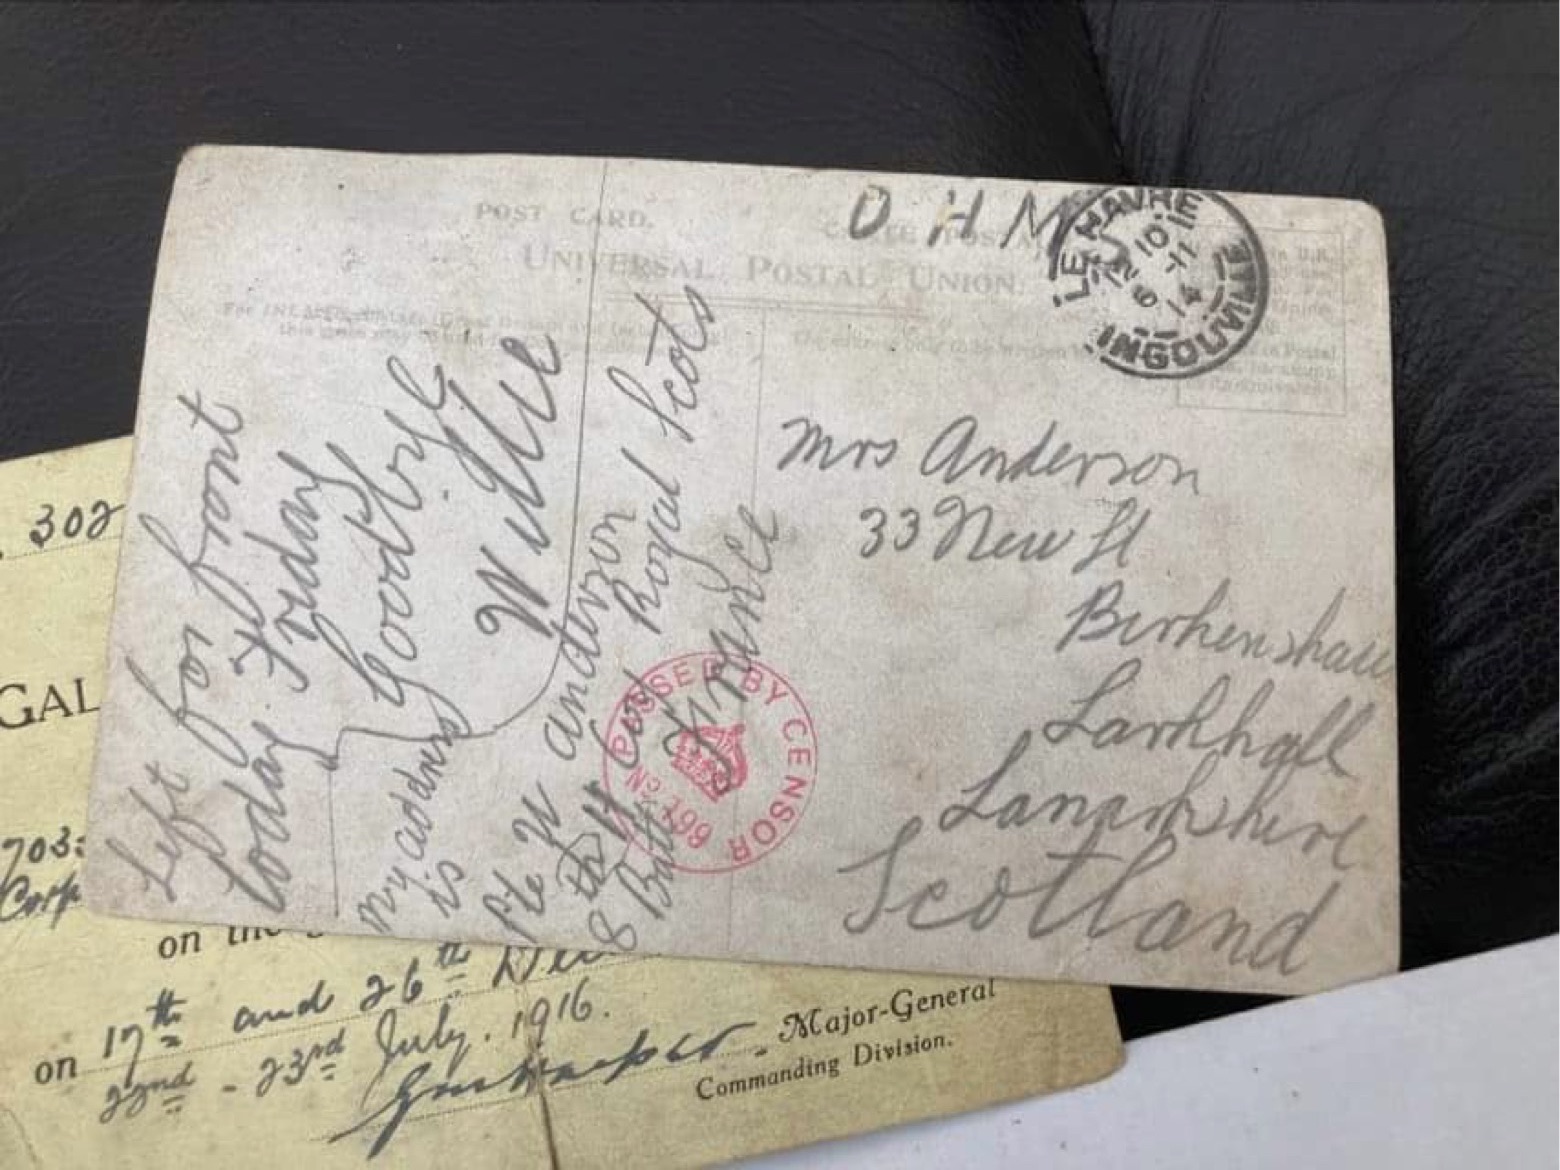 POST CARD.
CARTE POSTALE
UNIVERSAL POSTAL UNION.
O H M
LE HAVRE
10
6 11
14
INGOUVILLE
Left for front
today Friday
Goodbye
Willie
My address
is
Pte W anderson
8th H Coy Royal Scots
8 Batt France
PASSED BY CENSOR
No 199
Mrs Anderson
33 New St
Birkenshaw
Larkhall
Lanarkshire
Scotland
302
GAL
703
Corp
on the
on 17th and 26th
22nd - 23rd July. 1916.
Major-General
Commanding Division.